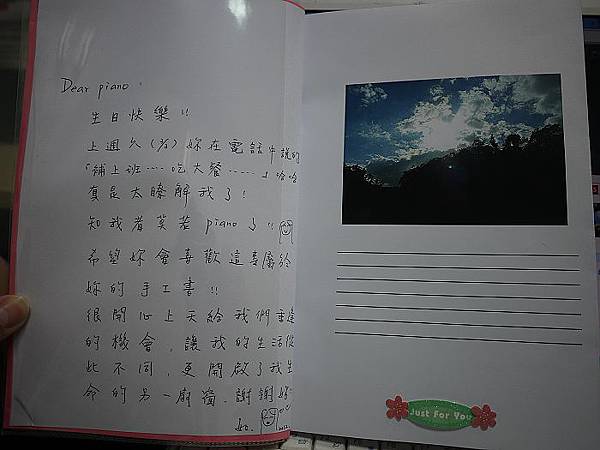 Dear piano:
生日快樂!!
上週六 妳在電話中說的
「補上班……吃大餐……」哈哈
真是太瞭解我了!
知我者莫若piano了!!
希望妳會喜歡這專屬於
妳的手工書!!
很開心上天給我們重逢
的機會,讓我的生活從
此不同,更開啟了我生
命的另一扇窗.謝謝妳
Just For You